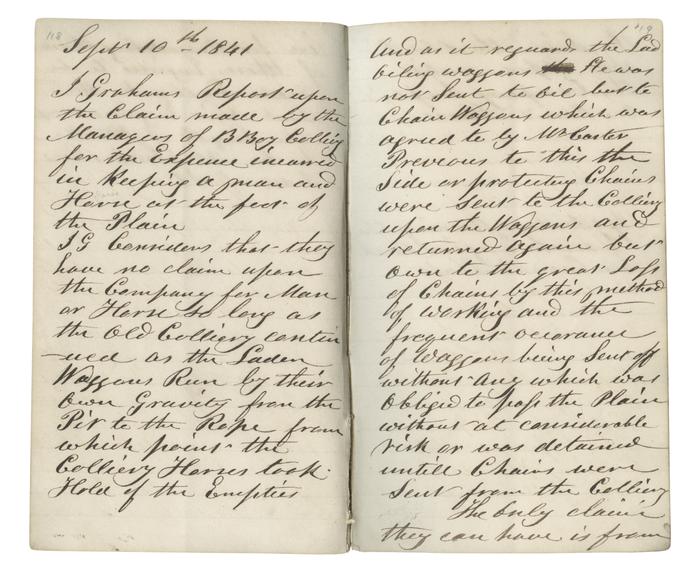 118
Sept 10th 1841
J Grahams Report upon
the Claim made by the
Managers of B Boy Colliery
for the Expence incurred
in Keeping a man and
Horse at the foot of
the Plain
JG Considers that they
have no claim upon
the Company for Man
or Horse so long as
the Old Colliery contin
-ued as the Laden
Waggons Run by their
Own Gravity from the
Pit to the Rope from
which point the
Colliery Horses took
Hold of the Empties
119
And as it reguards the Lad
oiling waggons He was
not Sent to oil but to
Chain Waggons which was
agreed to by Mr Carter
Previous to this the
Side or protecting Chains
were sent to the Colliery
upon the Waggons and
returned again but
Own to the great Loss
of Chains by this method
of working and the
frequent occurance
of Waggons being Sent off
without Any which was
Obliged to pass the Plain
without at considerable
risk or was detained
untill Chains were
Sent from the Colliery
The only claim
they can have is from